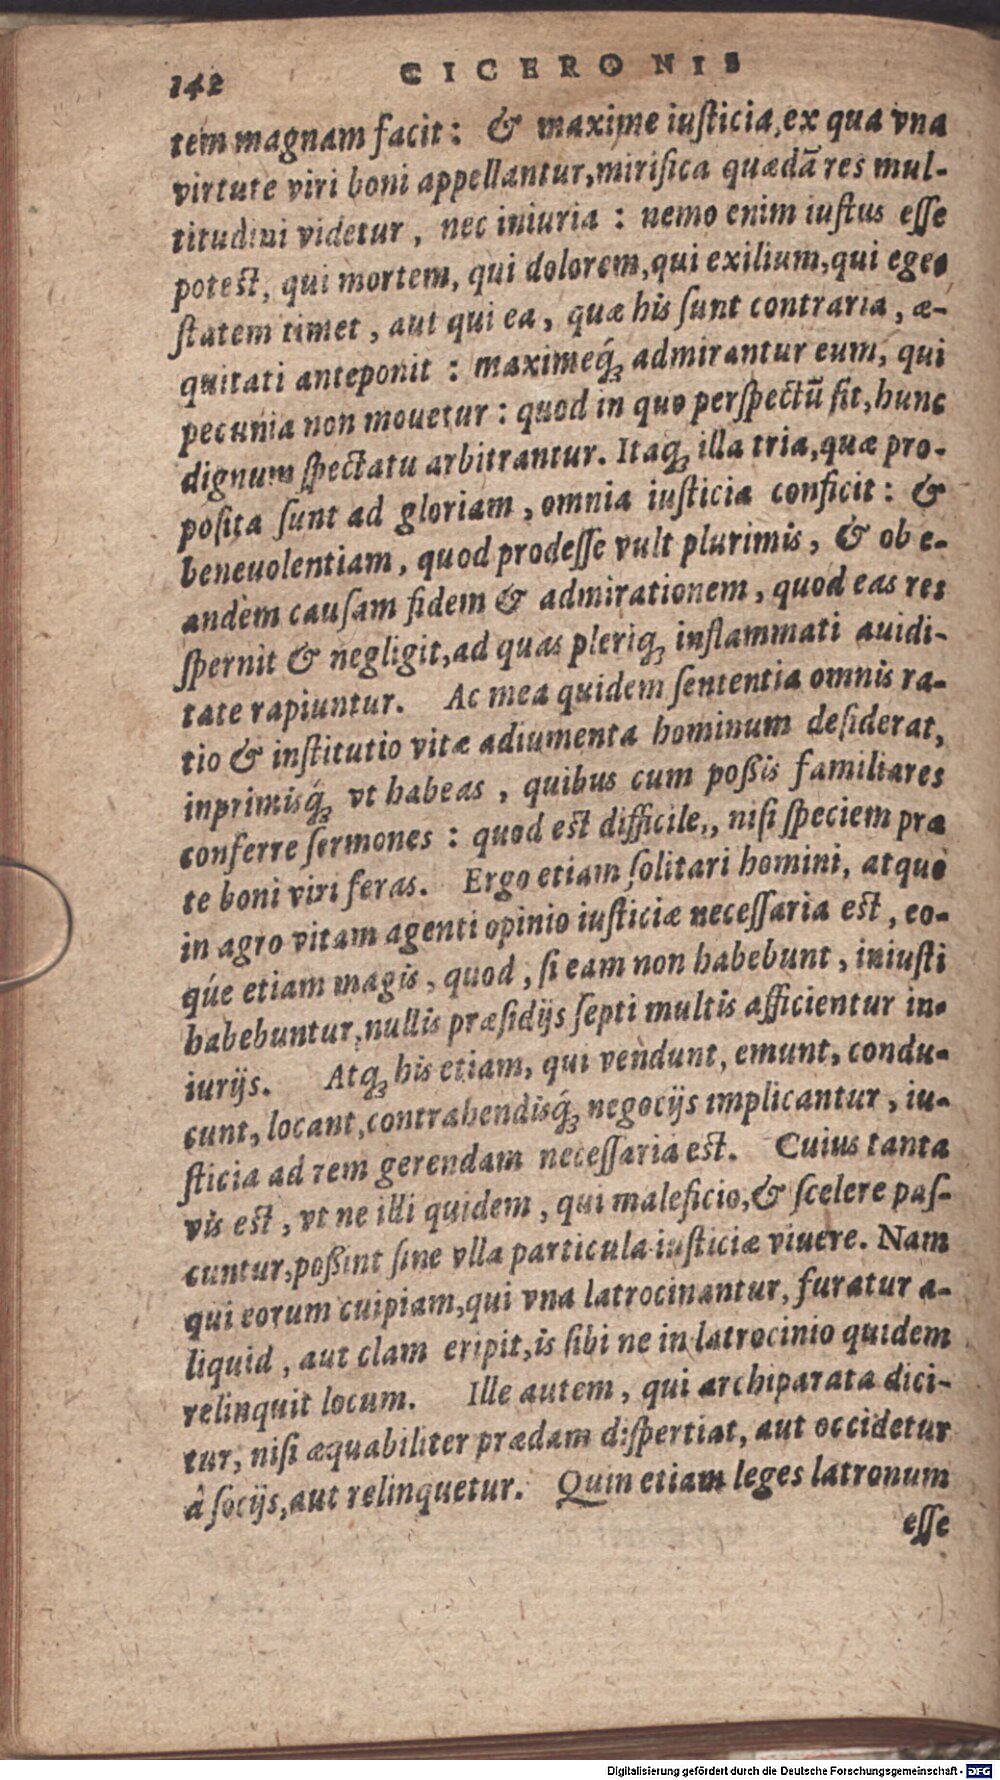 142 CICERONIS
tem magnam facit: & maxime iusticia, ex qua vna
virtute viri boni appellantur, mirifica quædā res mul-
titudini videtur, nec iniuria: nemo enim iustus esse
potest, qui mortem, qui dolorem, qui exilium, qui ege-
statem timet, aut qui ea, quæ his sunt contraria, æ-
quitati anteponit: maximeq́ꝫ admirantur eum, qui
pecunia non mouetur: quod in quo perspectū sit, hunc
dignum spectatu arbitrantur. Itaqꝫ illa tria, quæ pro-
posita sunt ad gloriam, omnia iusticia conficit: &
beneuolentiam, quod prodesse vult plurimis, & ob e-
andem causam fidem & admirationem, quod eas res
spernit & negligit, ad quas pleriqꝫ inflammati auidi-
tate rapiuntur. Ac mea quidem sententia omnis ra-
tio & institutio vitæ adiumenta hominum desiderat,
inprimisq́ꝫ vt habeas, quibus cum possis familiares
conferre sermones: quod est difficile, nisi speciem præ
te boni viri feras. Ergo etiam solitari homini, atque
in agro vitam agenti opinio iusticiæ necessaria est, eo-
q́ue etiam magis, quod, si eam non habebunt, iniusti
habebuntur, nullis præsidijs septi multis afficientur in-
iurijs. Atqꝫ his etiam, qui vendunt, emunt, condu-
cunt, locant, contrahendisq́ꝫ negocijs implicantur, iu-
sticia ad rem gerendam necessaria est. Cuius tanta
vis est, vt ne illi quidem, qui maleficio, & scelere pas-
cuntur, possint sine vlla particula iusticiæ viuere. Nam
qui eorum cuipiam, qui vna latrocinantur, furatur a-
liquid, aut clam eripit, is sibi ne in latrocinio quidem
relinquit locum. Ille autem, qui archiparata dici-
tur, nisi æquabiliter prædam dispertiat, aut occidetur
â socijs, aut relinquetur. Quin etiam leges latronum
esse
Digitalisierung gefördert durch die Deutsche Forschungsgemeinschaft - DFG